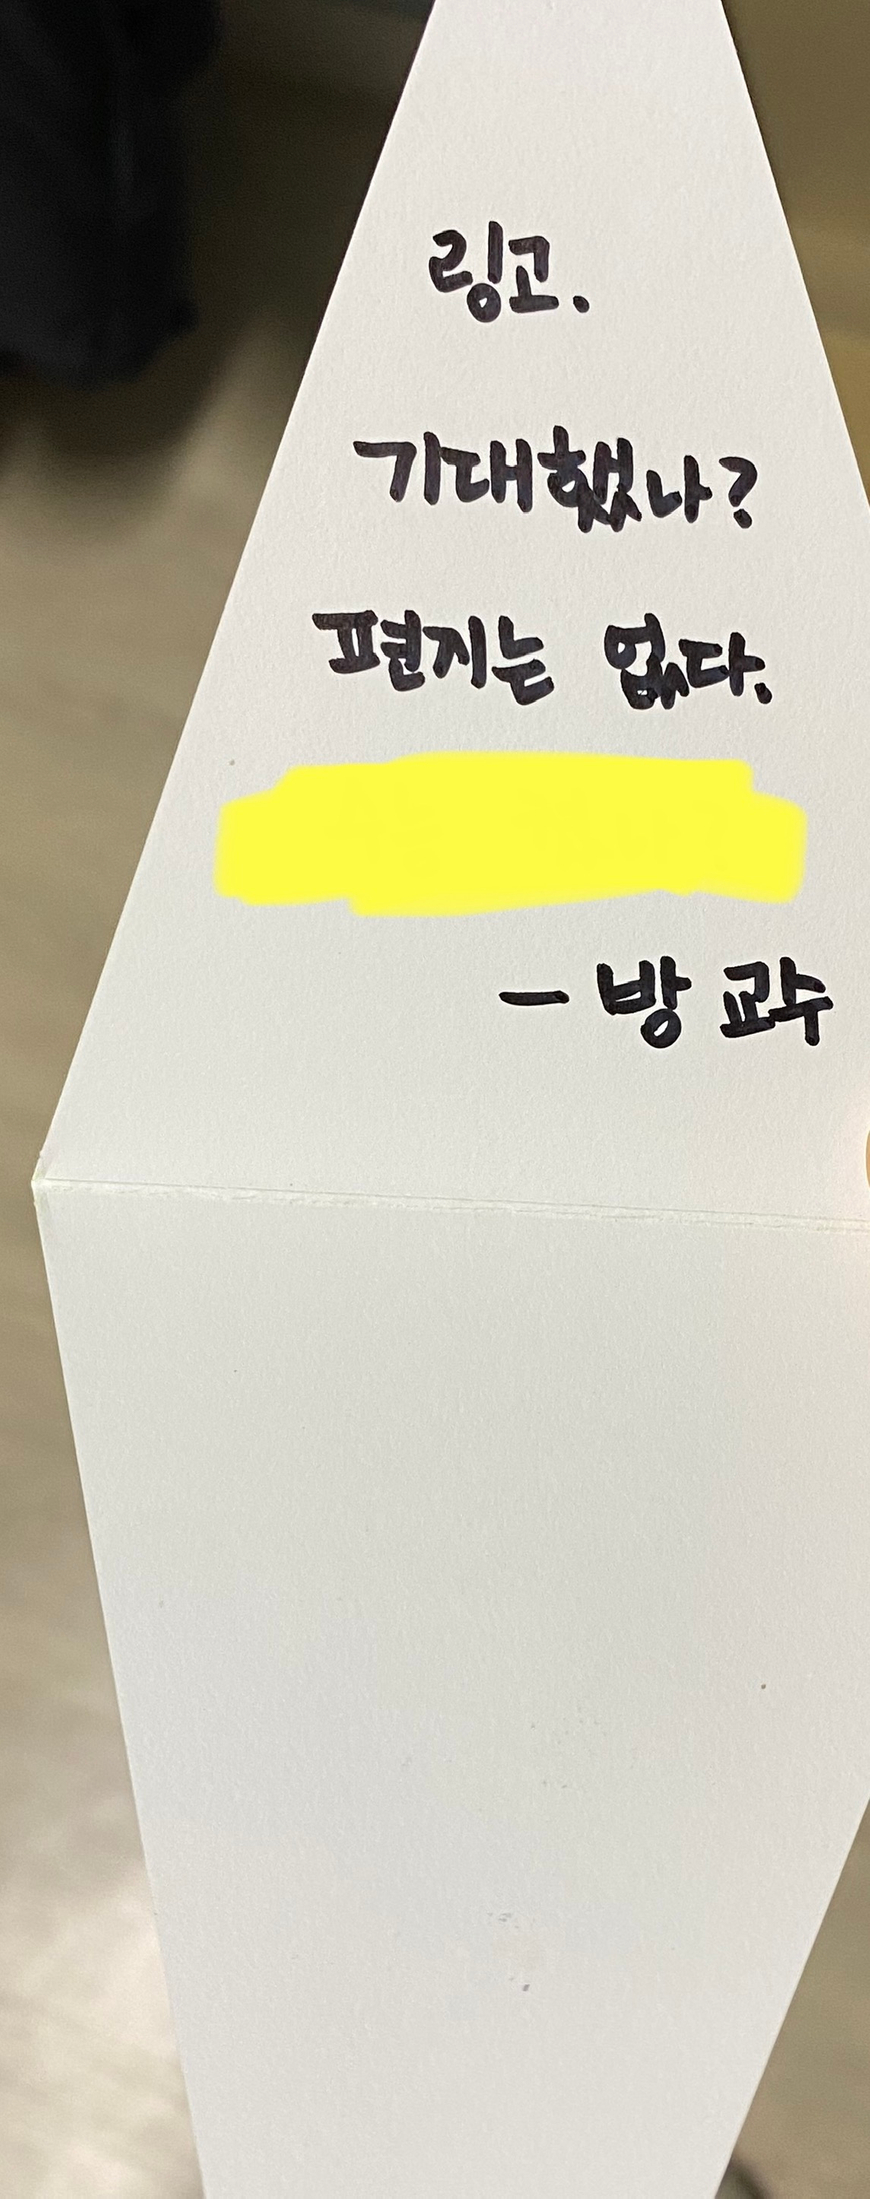 링고.
기대했나?
편지는 없다.
- 방 교수